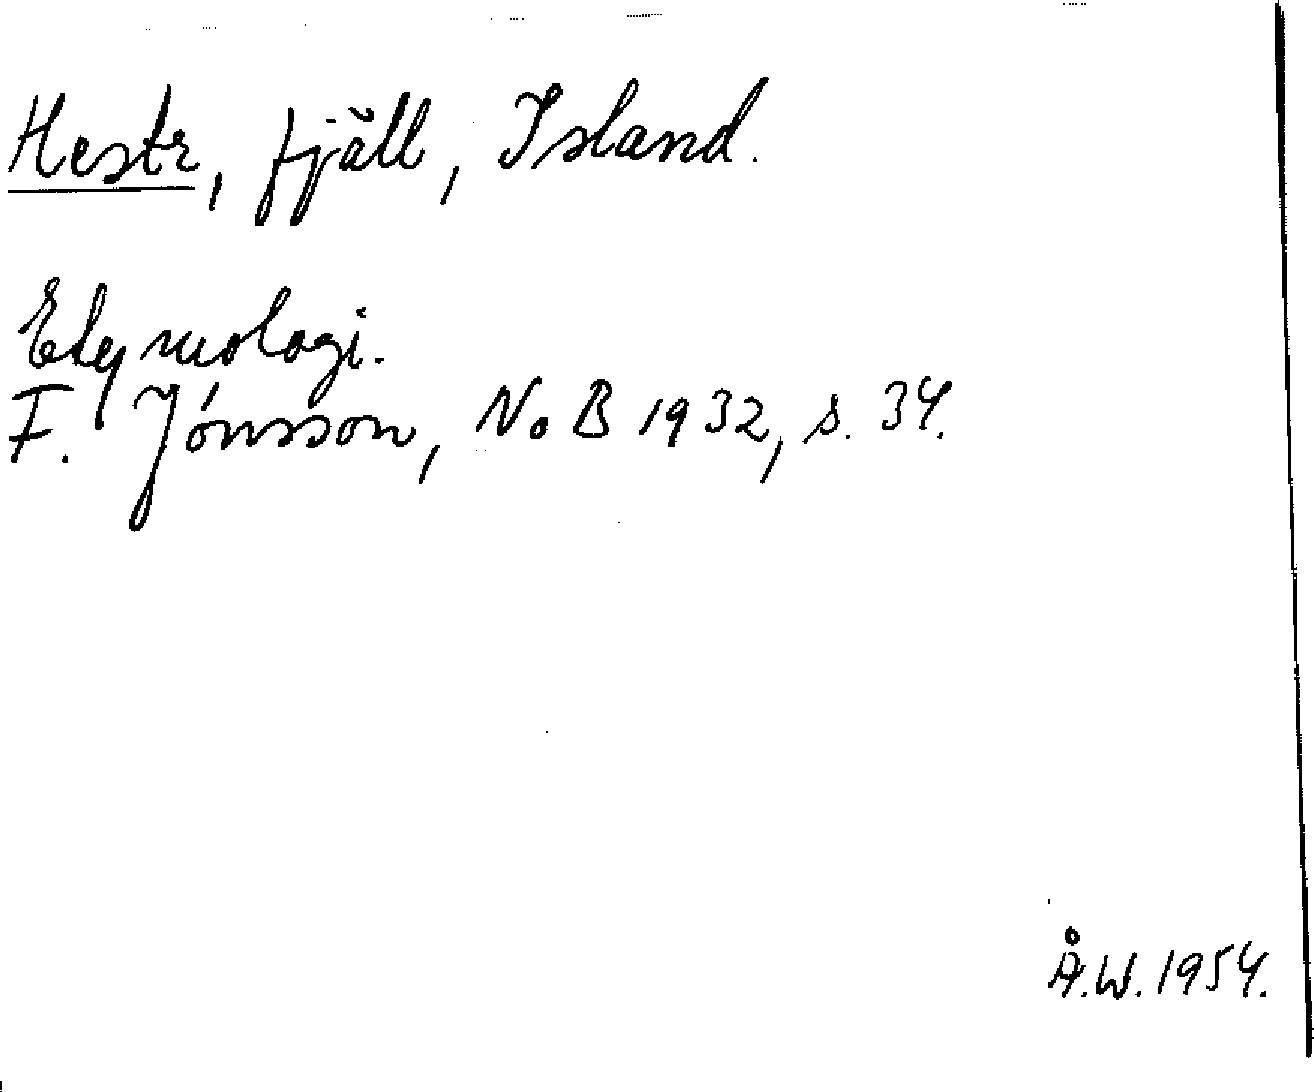 Hestr, fjäll, Island.
Etymologi.
F. Jónsson, NoB 1932, s. 34.
Å.W. 1954.